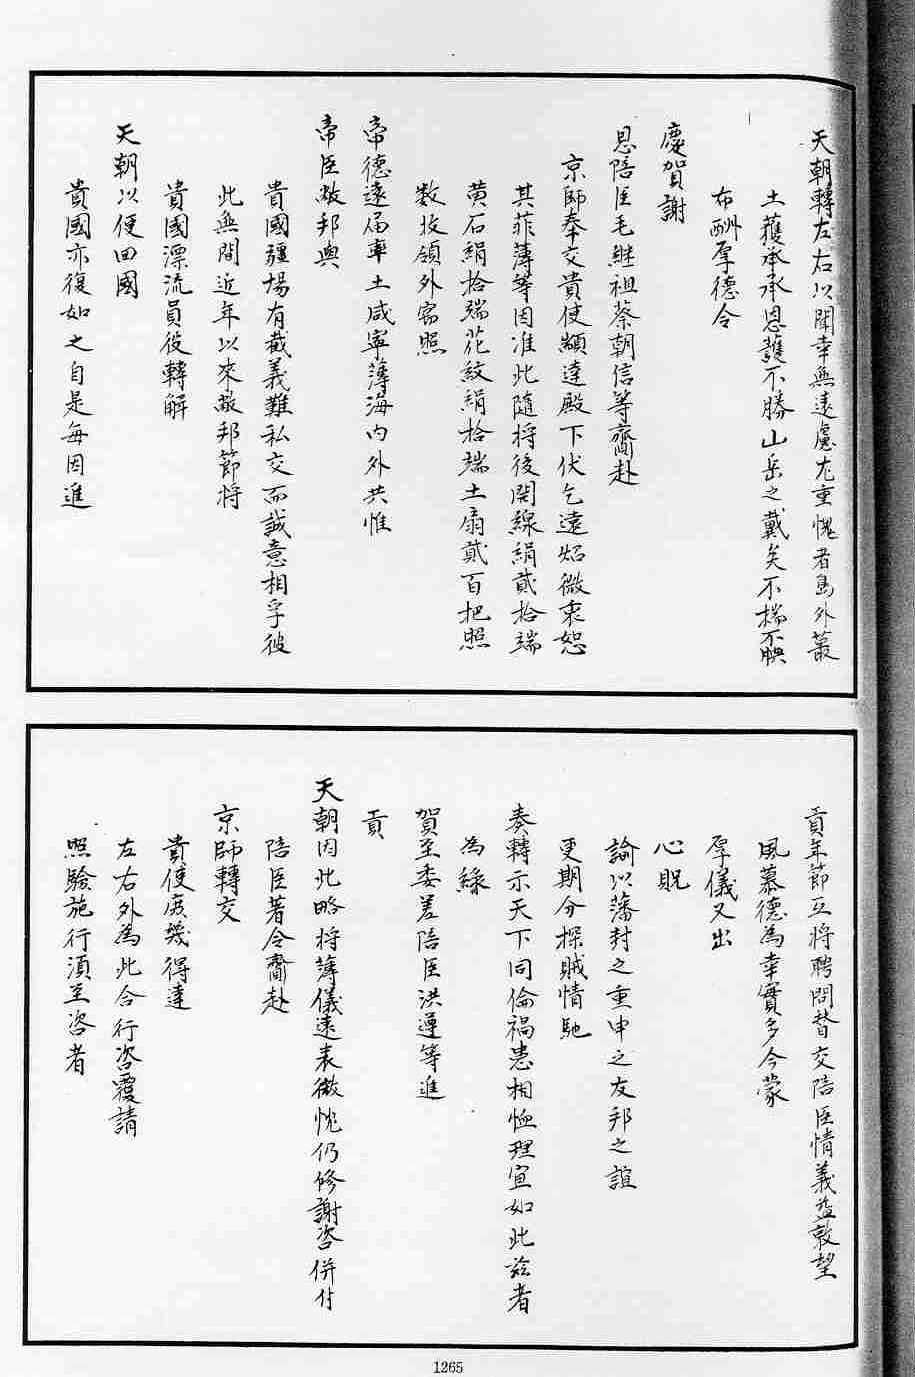 天朝轉左右以聞幸無遠慮尤重愧者島外叢
土獲承承恩護不勝山岳之戴矣不揣不腆
布酬厚德令
慶賀謝
恩陪臣毛継祖蔡朝信等齎赴
京師奉交貴使顓達殿下伏乞遠炤微衷恕
其菲薄等因准此隨將後開線絹貳拾端
黄石絹拾端花紋絹拾端土扇貳百把照
数收領外窃照
帝德遠届率土咸寧薄海内外共惟
帝臣敝邦與
貴國疆場有截義難私交而誠意相孚彼
此無間近年以來敝邦節將
貴國漂流員役轉解
天朝以便回國
貴國亦復如之自是每因進
貢年節互將聘問替交陪臣情義益敦望
風慕德為幸實多今蒙
厚儀又出
心貺
諭以藩封之重申之友邦之誼
更期分探賊情馳
奏轉示天下同倫禍患相恤理宜如此玆者
為緣
賀至委差陪臣洪遵等進
貢
天朝因此略将薄儀遠表微忱仍修謝咨併付
陪臣著令齎赴
京師轉交
貴使庻幾得達
左右外為此合行咨覆請
照驗施行湏至咨者
1265